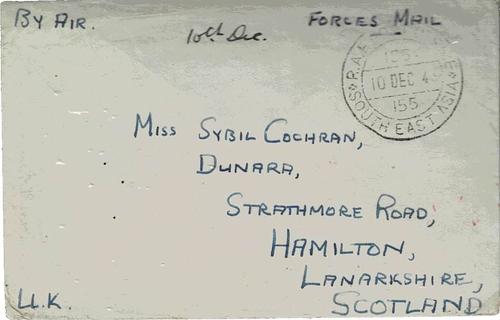 By Air.
Forces Mail
10th Dec.
R.A.F
155
10 DEC 4
155
SOUTH EAST ASIA
Miss Sybil Cochran,
Dunara,
Strathmore Road,
Hamilton,
Lanarkshire,
Scotland
U.K.